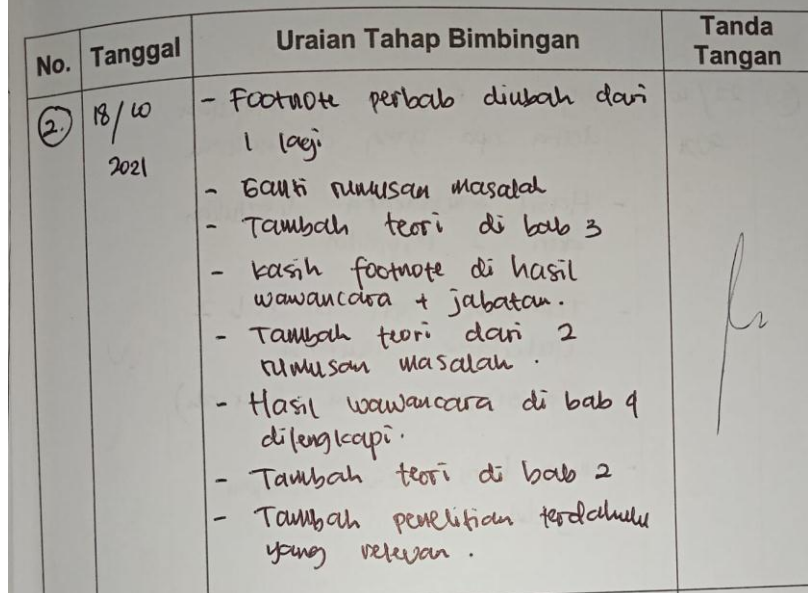 No. Tanggal Uraian Tahap Bimbingan Tanda Tangan
2. 18/10 2021
- Footnote perbab diubah dari
1 lagi
- Ganti rumusan masalah
- Tambah teori di bab 3
- kasih footnote di hasil
wawancara + jabatan.
- Tambah teori dari 2
rumusan masalah.
- Hasil wawancara di bab 4
dilengkapi.
- Tambah teori di bab 2
- Tambah penelitian terdahulu
yang relevan.